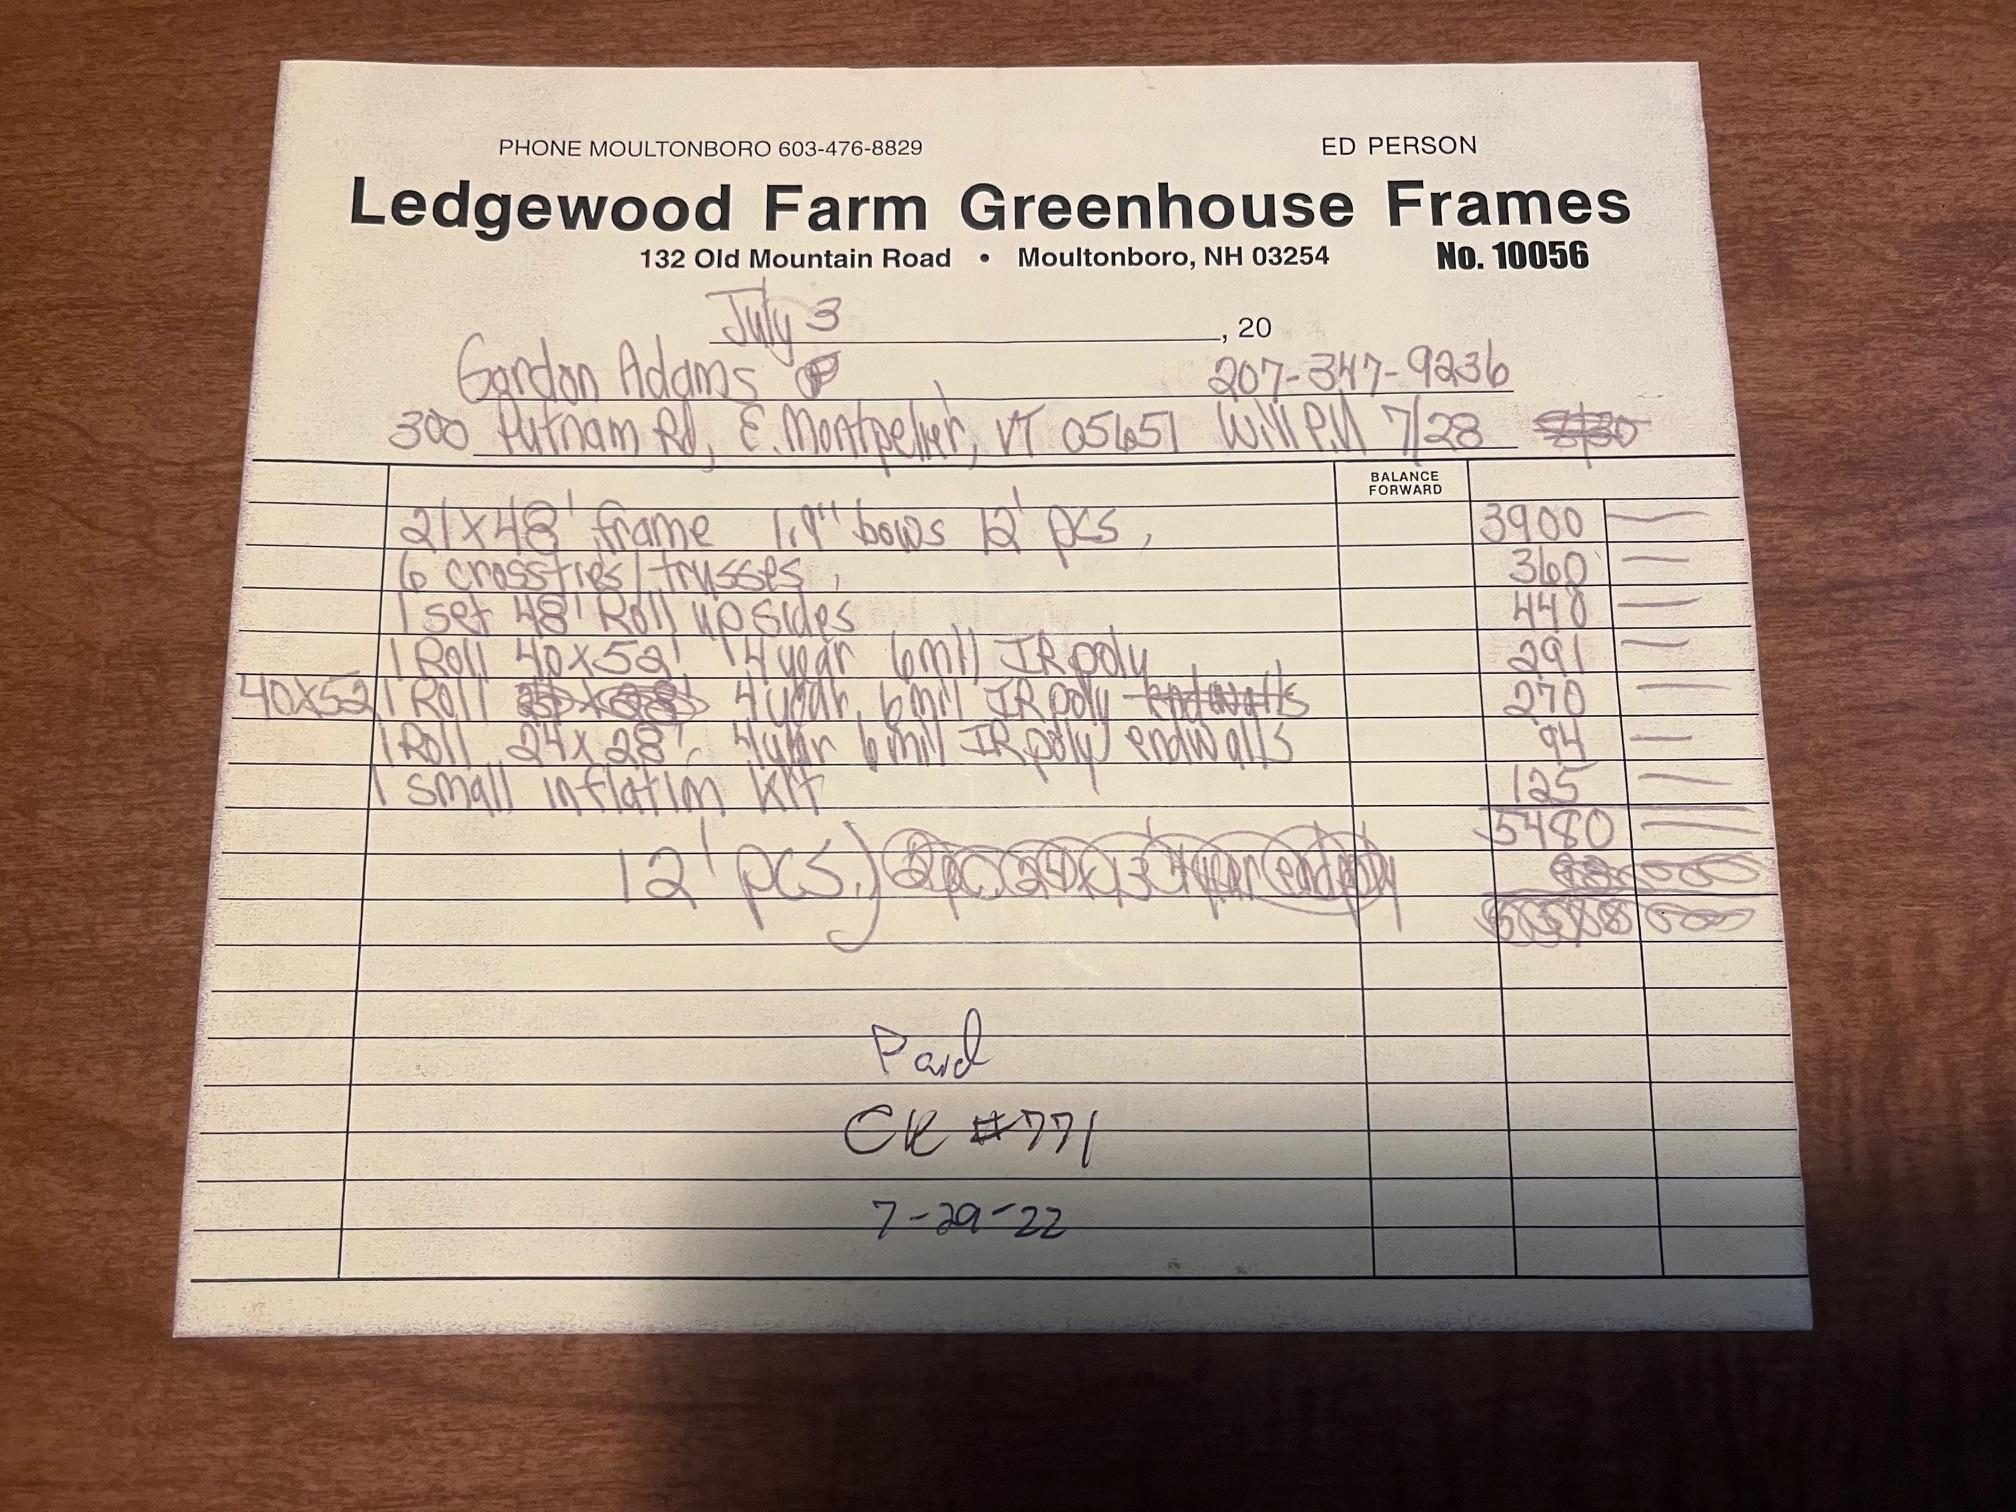 PHONE MOULTONBORO 603-476-8829 ED PERSON
Ledgewood Farm Greenhouse Frames
132 Old Mountain Road • Moultonboro, NH 03254 No. 10056
July 3 , 20
Gordon Adams 207-347-9236
300 Putnam Rd, E. Montpelier, VT 05651 Will P.U 7/28
BALANCE FORWARD
21x48' frame 1.9" bows 12' pcs, 3900 —
6 crossties/trusses, 360 —
1 set 48' Roll up sides 448 —
1 Roll 40x52' 4 year 6mil IR poly 291 —
40x52 1 Roll 4 year 6mil IR poly endwalls 270 —
1 Roll 24x28' 4 year 6mil IR poly endwalls 94 —
1 small inflation kit 125 —
5480 —
12' pcs.)
Paid
CK #771
7-29-22